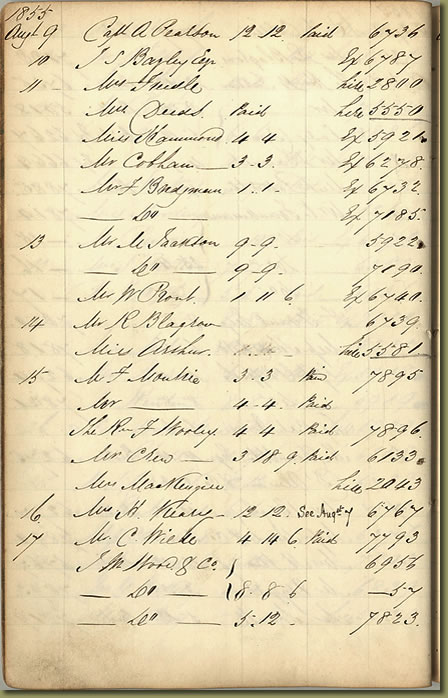 1855
Augt 9 Capt A Pearson 12 12. Paid 6736
10 J S Bayley Esq Ex 6787
11 Mrs Tredle hire 2800
Mrs Deeds. Paid hire 5550
Miss Hammond 4 4 Ex 5921
Mr Cobham 3-3. Ex 6278.
Mr J Bridgman 1.1- Ex 6732
Do Ex 7185.
13 Mr M Jackson 9-9. 5922
Do 9-9. 7190.
Mr W Prout. 1 11 6. Ex 6740.
14 Mr R Blagrove 6739.
Miss Arthur. hire 5581
15 Mr F Moutrie 3-3 Paid 7895
Mr 4-4. Paid
The Rev J Wooley 4 4 Paid 7896.
Mr Chew 3-18 9. Paid 6133
Mrs MacKenzie hire 2043
16 Mrs A 12 12. See Augst 7 6767
17 Mr. C. Wilde 4 14 6 Paid 7793
J M Wood & Co. 6956
Do 8.8 6 —57
Do 5.12- 7823.